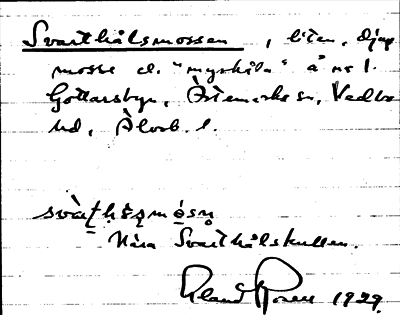 Svarthålsmossen, liten, djup
mosse el. "myrhåla" å nr 1.
Gottarsbyn, Östemarks sn, Vedbo
hd, Älvsb. l.
Nära Svarthålskullen.
Erland Rosell 1929.